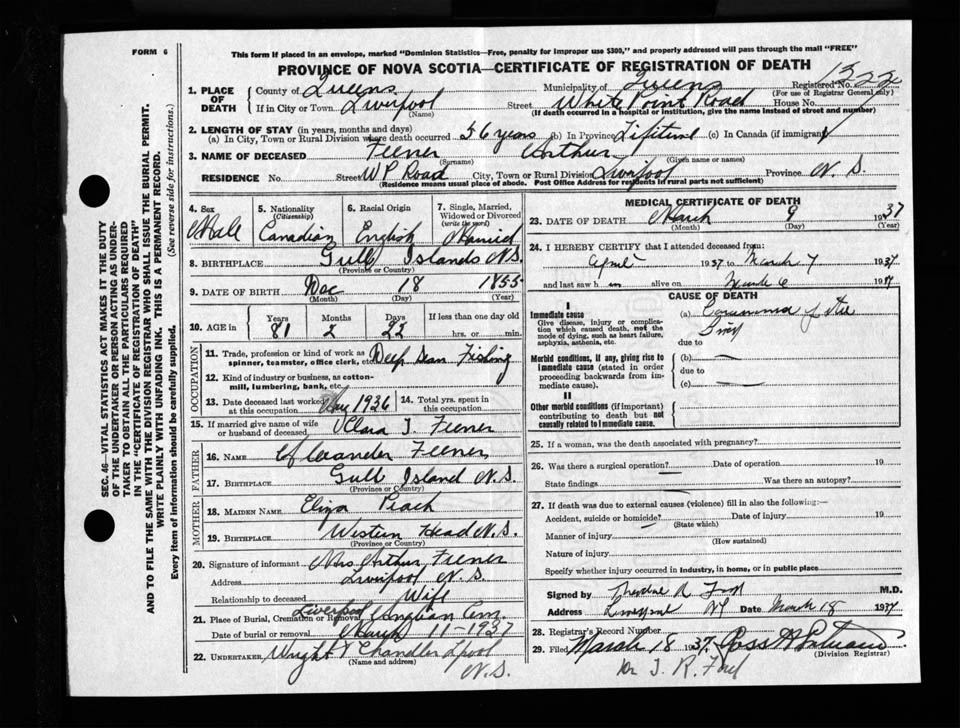 FORM 6
This form if placed in an envelope, marked "Dominion Statistics—Free, penalty for improper use $300," and properly addressed will pass through the mail "FREE"
PROVINCE OF NOVA SCOTIA—CERTIFICATE OF REGISTRATION OF DEATH
1. PLACE OF DEATH
County of Queens Municipality of Queens Registered No.
(For use of Registrar General only)
If in City or Town Liverpool Street White Point Road House No.
(Name) (If death occurred in a hospital or institution, give the name instead of street and number)
2. LENGTH OF STAY (in years, months and days)
(a) In City, Town or Rural Division where death occurred 56 years (b) In Province Lifetime (c) In Canada (if immigrant)
3. NAME OF DECEASED Feener Arthur
(Surname) (Given name or names)
RESIDENCE No. Street W P Road City, Town or Rural Division Liverpool Province N. S.
(Residence means usual place of abode. Post Office Address for residents in rural parts not sufficient)
4. Sex Male
5. Nationality (Citizenship) Canadian
6. Racial Origin English
7. Single, Married, Widowed or Divorced (write the word) Married
8. BIRTHPLACE Gull Islands N.S.
(Province or Country)
9. DATE OF BIRTH Dec 18 1855
(Month) (Day) (Year)
10. AGE in Years 81 Months 2 Days 22 If less than one day old hrs. or min.
OCCUPATION
11. Trade, profession or kind of work as spinner, teamster, office clerk, etc. Deep Sea Fishing
12. Kind of industry or business, as cotton-mill, lumbering, bank, etc.
13. Date deceased last worked at this occupation 1936
14. Total yrs. spent in this occupation
15. If married give name of wife or husband of deceased Clara J. Feener
FATHER
16. NAME Alexander Feener
17. BIRTHPLACE Gull Island N.S.
(Province or Country)
MOTHER
18. MAIDEN NAME Eliza
19. BIRTHPLACE Western Head N.S.
(Province or Country)
20. Signature of informant Mrs Arthur Feener
Address Liverpool N.S.
Relationship to deceased Wife
21. Place of Burial, Cremation or Removal Liverpool Anglican Cem.
Date of burial or removal March 11-1937
22. UNDERTAKER Wright & Chandler Lpool N.S.
(Name and address)
MEDICAL CERTIFICATE OF DEATH
23. DATE OF DEATH March 9 1937
(Month) (Day) (Year)
24. I HEREBY CERTIFY that I attended deceased from:
1937 to March 7 1937
and last saw him alive on March 6 1937
CAUSE OF DEATH
I
Immediate cause
Give disease, injury or complication which caused death, not the mode of dying, such as heart failure, asphyxia, asthenia, etc.
(a) Carcinoma of the
due to
Morbid conditions, if any, giving rise to immediate cause (stated in order proceeding backwards from immediate cause).
(b)
due to
(c)
II
Other morbid conditions (if important) contributing to death but not causally related to immediate cause.
25. If a woman, was the death associated with pregnancy?
26. Was there a surgical operation? Date of operation 19
State findings Was there an autopsy?
27. If death was due to external causes (violence) fill in also the following:—
Accident, suicide or homicide? Date of injury 19
(State which)
Manner of injury
(How sustained)
Nature of injury
Specify whether injury occurred in industry, in home, or in public place
Signed by M.D.
Address Liverpool NS Date March 18 1937
28. Registrar's Record Number
29. Filed March 18 1937
(Division Registrar)
Dr J. R. Ford
SEC. 46—VITAL STATISTICS ACT MAKES IT THE DUTY
OF THE UNDERTAKER OR PERSON ACTING AS UNDER-
TAKER TO OBTAIN ALL THE PARTICULARS REQUIRED
IN THE "CERTIFICATE OF REGISTRATION OF DEATH"
AND TO FILE THE SAME WITH THE DIVISION REGISTRAR WHO SHALL ISSUE THE BURIAL PERMIT.
WRITE PLAINLY WITH UNFADING INK. THIS IS A PERMANENT RECORD.
Every item of information should be carefully supplied. (See reverse side for instructions.)